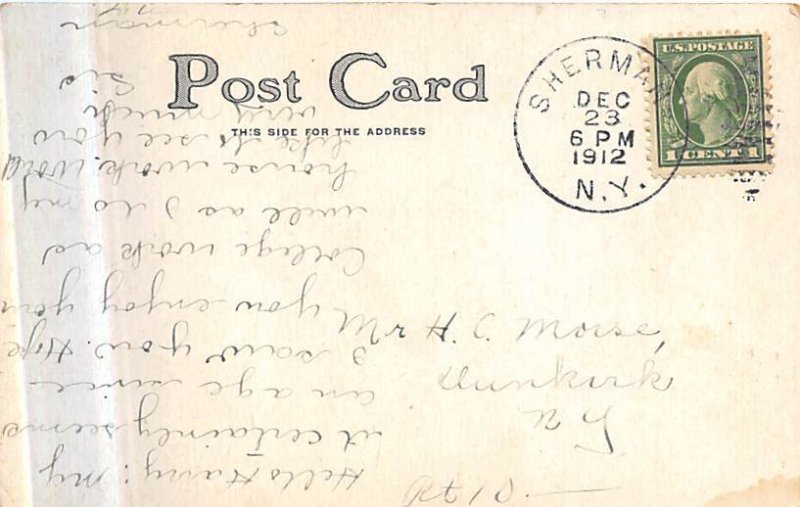 Post Card
THIS SIDE FOR THE ADDRESS
SHERMAN
DEC
23
6 PM
1912
N.Y.
U.S. POSTAGE
1 CENT 1
Mr H. C. Morse,
Dunkirk
n y
Hello Harry: my
it certainly seems
an age since
I saw you. Hope
you enjoy your
College work as
well as I do my
house work. Would
like to see you
very much
Sis
Sherman